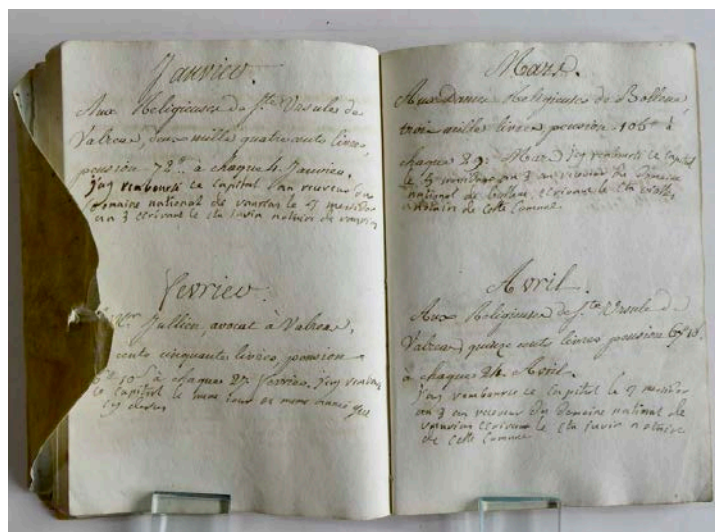 Janvier.
Aux Religieuses de Ste Ursule de
Valreas, deux mille quatre cents livres,
pension 72# à chaque 4 Janvier.
j'ay remboursé ce capital au receveur du
domaine national de vaureas le 7 messidor
an 3 ecrivant le cen juvin notaire de vaureas
Fevrier.
Mr Jullien, avocat à Valreas,
cents cinquante livres pension
10s à chaque 27 fevrier, j'ay rembourse
ce capital le meme jour et meme année que
cy dessus
Mars.
Aux Dames Religieuses de Bollene,
trois mille livres, pension 105# à
chaque 29: Mars j'ay remboursé ce capital
le messidor an 3 au receveur du domaine
national de bollene, ecrivant le cen
notaire de cette Commune
Avril.
Aux Religieuses de Ste Ursule de
Valreas quinze cents livres pension
à chaque 24 Avril.
j'ay remboursé ce capital le 7 messidor
an 3 au receveur du domaine national de
vaureas ecrivant le cen juvin notaire
de cette Commune